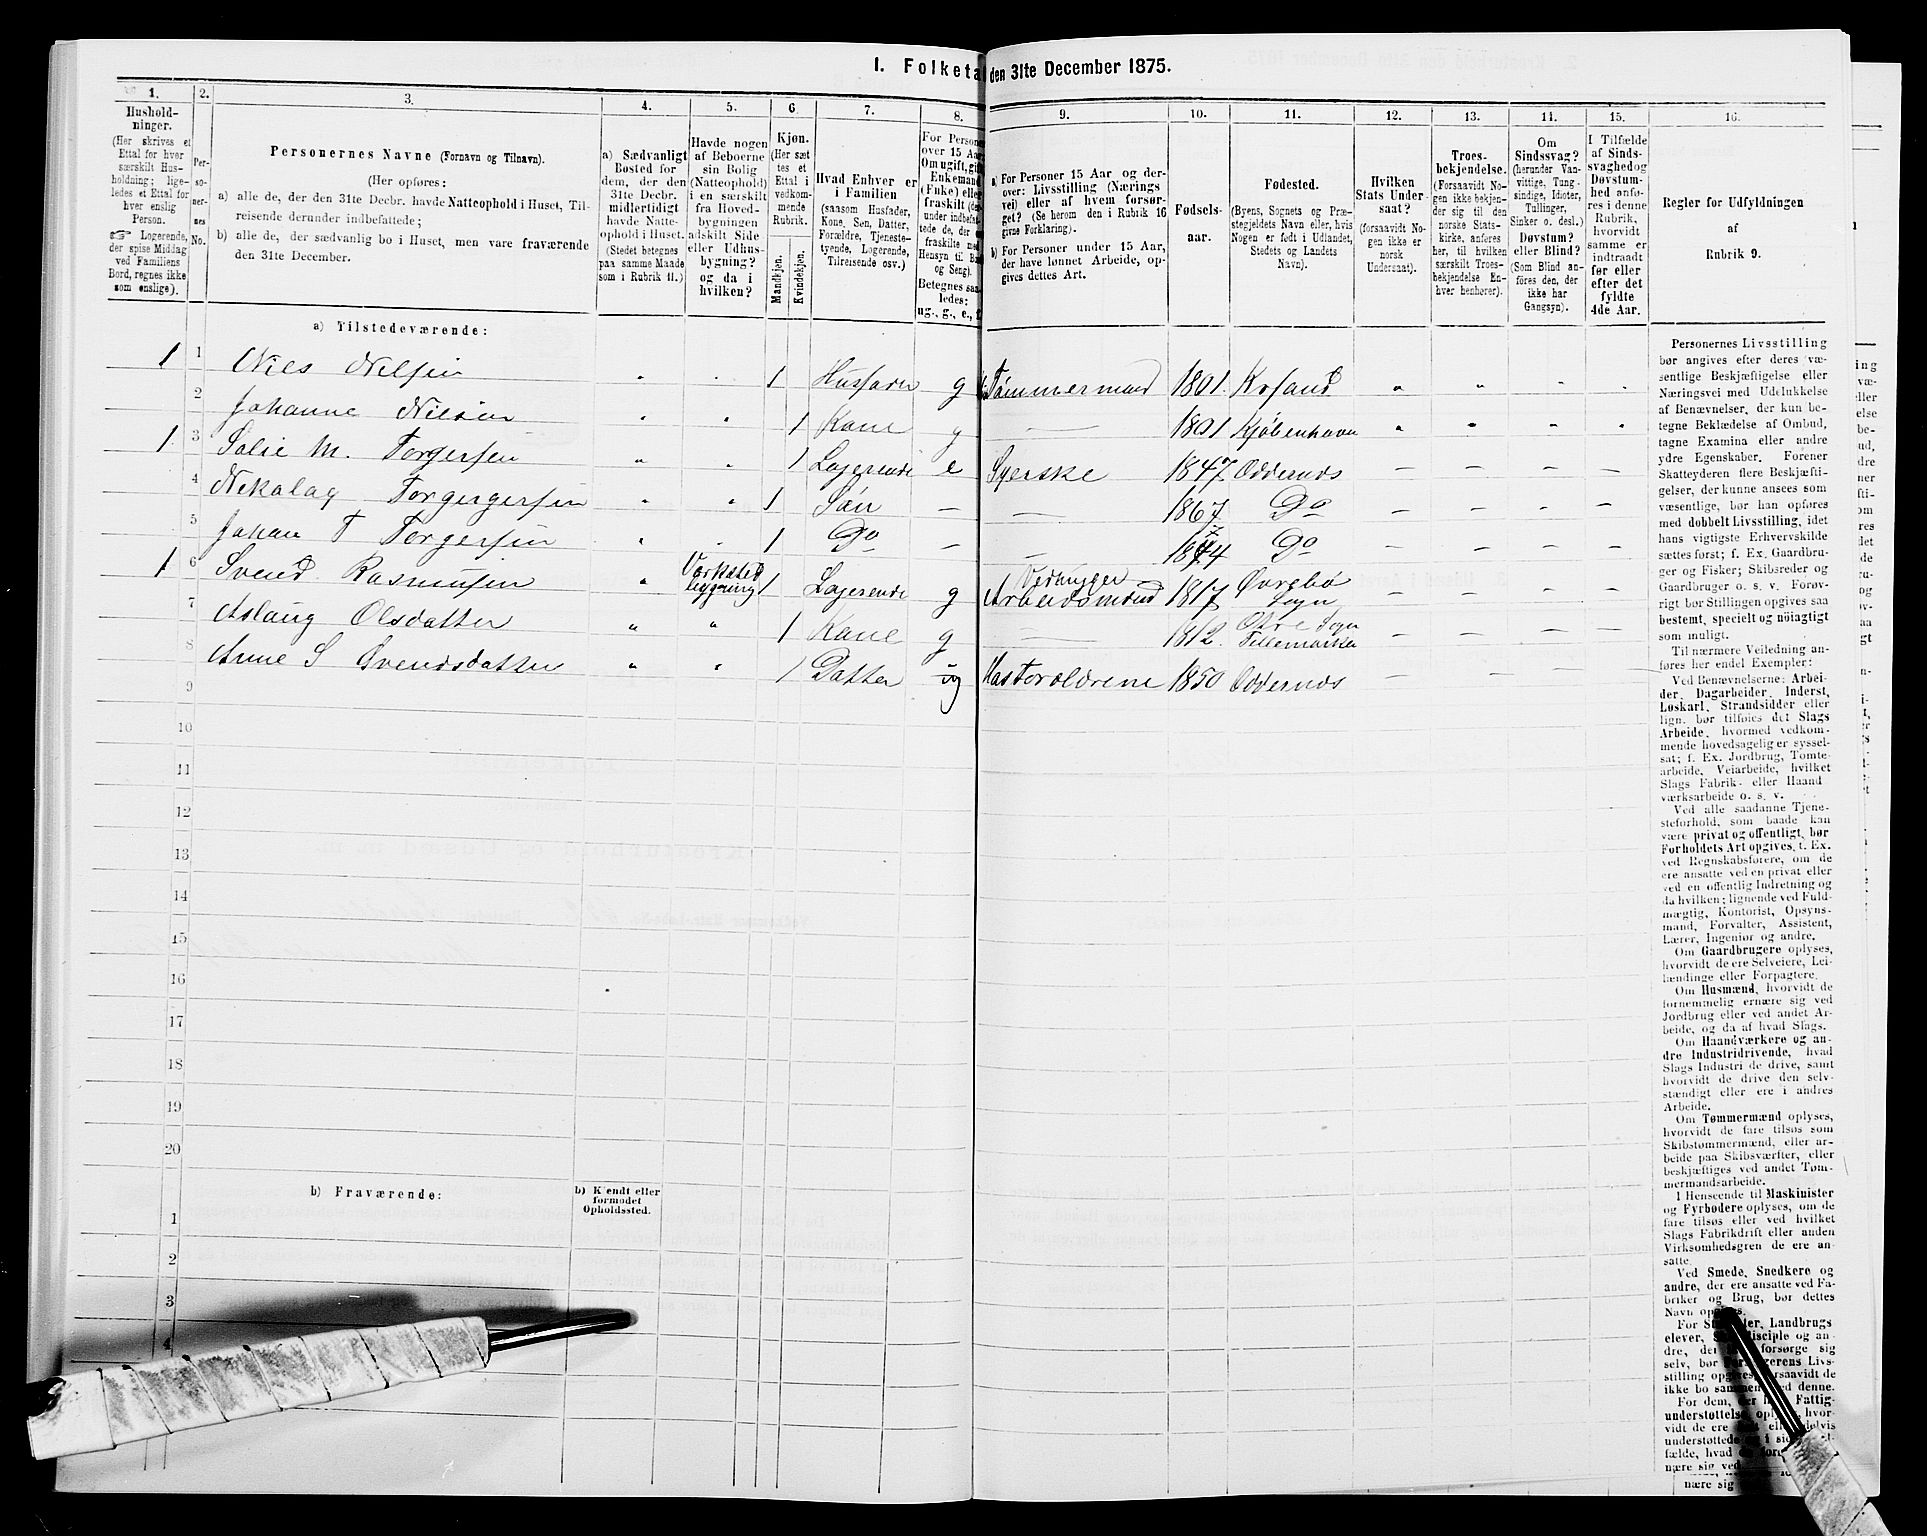 I. Folketa den 31te December 1875.
1. 2. 3. 4. 5. 6 7. 8. 9. 10. 11. 12. 13. 14. 15. 16.
Hushold-
ninger.
(Her skrives et
Ettal for hver
særskilt Hus-
holdning; lige-
ledes et Ettal for
hver enslig
Person.
Logerende,
der spise Middag
ved Familiens
Bord, regnes ikke
som enslige).
Per-
so-
ner-
nes
No.
Personernes Navne (Fornavn og Tilnavn).
(Her opføres:
a) alle de, der den 31te Decbr. havde Natteophold i Huset, Til-
reisende derunder indbefattede;
b) alle de, der sædvanlig bo i Huset, men vare fraværende
den 31te December.
a) Sædvanligt
Bosted for
dem, der den
31te Decbr.
midlertidigt
havde Natte-
ophold i Huset.
(Stedet betegnes
paa samme Maade
som i Rubrik 11.)
Havde nogen
af Beboerne
sin Bolig
(Natteophold)
i en særskilt
fra Hoved-
bygningen
adskilt Side
eller Udhus-
bygning?
og da i
hvilken?
Kjøn.
(Her sæt
tes et
Ettal i
vedkom-
mende
Rubrik.
Mandkjøn.
Kvindekjøn.
Hvad Enhver er
i Familien
(saasom Husfader,
Kone, Søn, Datter,
Forældre, Tjeneste-
tyende, Logerende,
Tilreisende osv.)
For Persone
over 15 Aar
Om ugift, gif
Enkemand
(Enke) eller
fraskilt (de
under indbefat-
tede de, der
fraskilte me
Hensyn til Bo
og Seng).
Betegnes saa-
ledes:
ug., g., e., f
a) For Personer 15 Aar og der-
over: Livsstilling (Nærings
vei) eller af hvem forsør-
get? (Se herom den i Rubrik 16
givne Forklaring).
b) For Personer under 15 Aar,
der have lønnet Arbeide, op-
gives dettes Art.
Fødsels-
aar.
Fødested.
(Byens, Sognets og Præ-
stegjeldets Navn eller, hvis
Nogen er født i Udlandet,
Stedets og Landets
Navn).
Hvilken
Stats Under-
saat?
(forsaavidt No-
gen ikke er
norsk
Undersaat).
Troes-
bekjendelse.
(Forsaavidt No-
gen ikke bekjen-
der sig til den
norske Stats-
kirke, anføres
her, til hvilken
særskilt Troes-
bekjendelse En-
hver henhører).
Om
Sindssvag?
(herunder Van-
vittige, Tung-
sindige, Idioter,
Tullinger,
Sinker o. desl.)
Døvstum?
eller Blind?
(Som Blind an-
føres den, der
ikke har
Gangsyn).
I Tilfælde
af Sinds-
svaghed og
Døvstum-
hed anfø-
res i denne
Rubrik,
hvorvidt
samme er
indtraadt
før eller
efter det
fyldte
4de Aar.
Regler for Udfyldningen
af
Rubrik 9.
a) Tilstedeværende:
1 1 Nils Nilsen " " 1 Husfader g Tømmermand 1801 Krsand " " " "
2 Johanne Nilsen " " 1 Kone g — 1801 Kjøbenhavn " " " "
1 3 Salie M. Torgersen " " 1 Logerende e Syerske 1847 Oddernes — — — —
4 Nikolay Torgergersen " " 1 Søn — — 1867 Do — — — —
5 Johan T Torgersen " " 1 Do — — 1874 Do — — — —
1 6 Svend Rasmusen " Værksted bygning 1 Logerende g Vedhugger Arbeidsmand 1817 Øvrebø Sogn — — — —
7 Aslaug Olsdatter " " 1 Kone g — 1812. Sogn — — — —
8 Anne S Svendsdatter " " 1 Datter ug Hos Foreldrene 1850 Oddernes — —
9
10
11
12
13
14
15
16
17
18
19
20
b) Fraværende:
b) Kjendt eller
formodet
Opholdssted.
1
2
3
4
Personernes Livsstilling
bør angives efter deres væ-
sentlige Beskjæftigelse eller
Næringsvei med Udelukkelse
af Benævnelser, der kun be-
tegne Beklædelse af Ombud,
tagne Examina eller andre
ydre Egenskaber. Forener
Skatteyderen flere Beskjæfti-
gelser, der kunne ansees som
væsentlige, bør han opføres
med dobbelt Livsstilling, idet
hans vigtigste Erhvervskilde
sættes først; f. Ex. Gaardbru-
ger og Fisker; Skibsreder og
Gaardbruger o. s. v. Forøv-
rigt bør Stillingen opgives saa
bestemt, specielt og nøiagtigt
som muligt.
Til nærmere Veiledning an-
føres her endel Exempler:
Ved Benævnelserne: Arbei-
der, Dagarbeider, Inderst,
Løskarl, Strandsidder eller
lign. bør tilføies det Slags
Arbeide, hvormed vedkom-
mende hovedsagelig er syssel-
sat; f. Ex. Jordbrug, Tomte-
arbeide, Veiarbeide, hvilket
Slags Fabrik- eller Haand
værksarbeide o. s. v.
Ved alle saadanne Tjene-
steforhold, som baade kan
være privat og offentligt, bør
Forholdets Art opgives, f. Ex.
ved Regnskabsførere, om de
ere ansatte ved en privat eller
ved en offentlig Indretning og
da hvilken; lignende ved Fuld-
mægtig, Kontorist, Opsyns-
mand, Forvalter, Assistent,
Lærer, Ingeniør og andre.
Om Gaardbrugere oplyses,
hvorvidt de ere Selveiere, Lei-
lændinge eller Forpagtere.
Om Husmænd, hvorvidt de
fornemmelig ernære sig ved
Jordbrug eller ved andet Ar-
beide, og da af hvad Slags.
Om Haandværkere og an-
dre Industridrivende, hvad
Slags Industri de drive, samt
hvorvidt de drive den selv-
stændigt eller ere i andres
Arbeide.
Om Tømmermænd oplyses,
hvorvidt de fare tilsøs som
Skibstømmermænd, eller ar-
beide paa Skibsværfter, eller
beskjæftiges ved andet Tøm-
mermandsarbeide.
I Henseende til Maskinister
og Fyrbødere oplyses, om de
fare tilsøs eller ved hvilket
Slags Fabrikdrift eller anden
Virksomhedsgren de ere an-
satte.
Ved Smede, Snedkere og
andre, der ere ansatte ved Fa-
briker og Brug, bør dettes
Navn opgives.
For Landbrugs
elever, og an-
dre, forsørge sig
selv, bør Livs-
stilling forsaavidt de
ikke bo sammen med denne.
For dem, der Fattig-
understøttelse hvor-
vidt de ere
understøttede
fælde, hvad
nære sig ved
nære sig